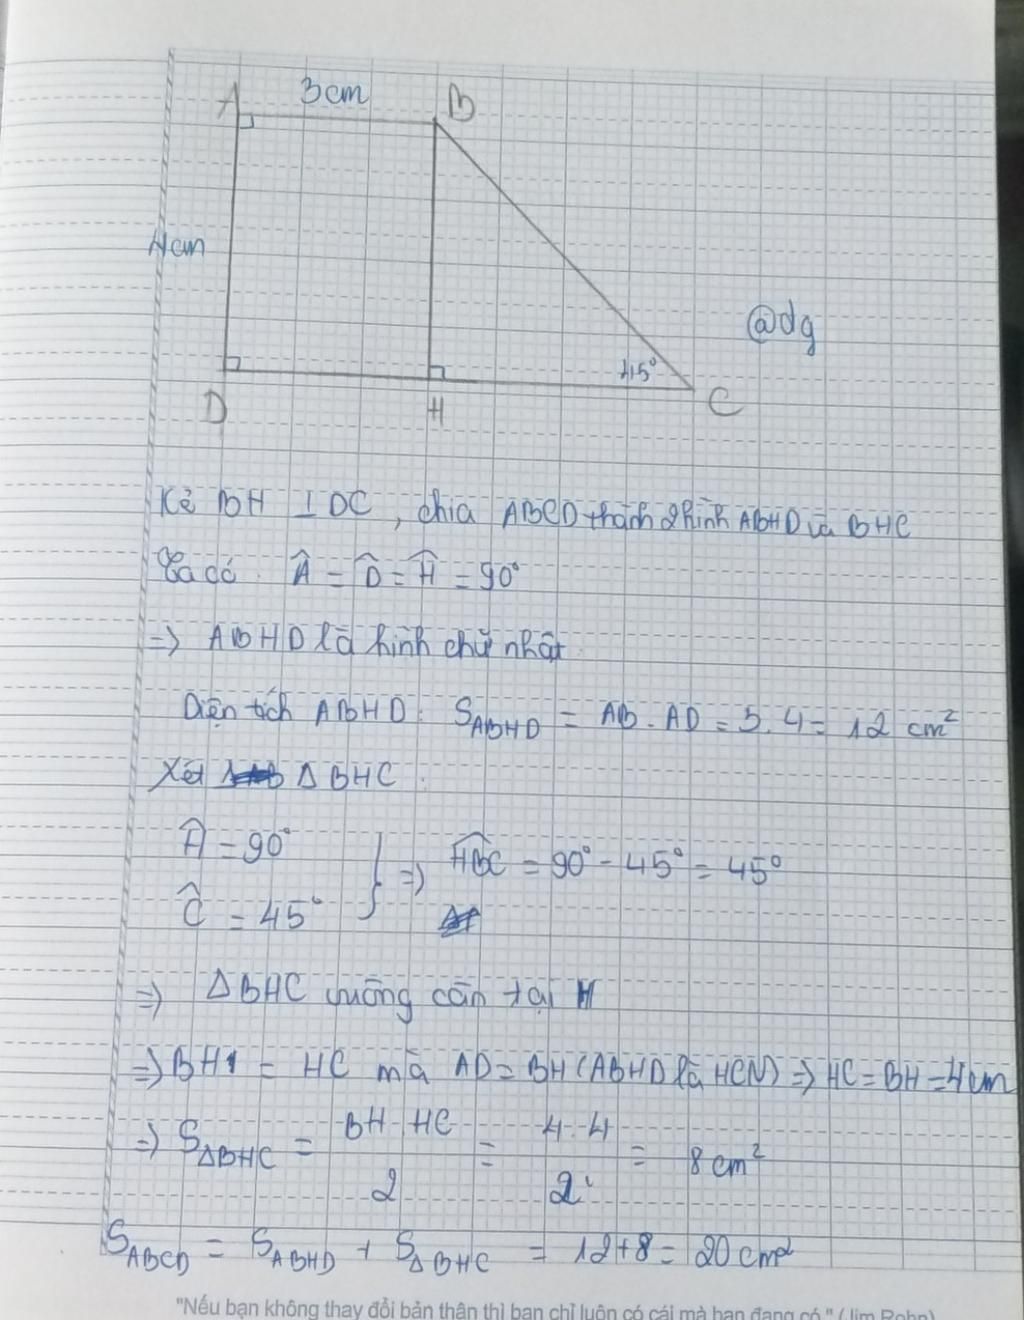 A 3cm B
4cm
@dg
45°
D H C
Kẻ BH ⊥ DC, chia ABCD thành 2 hình ABHD và BHC
Ta có: Â = D̂ = Ĥ = 90°
=> ABHD là hình chữ nhật
Diện tích ABHD: S_ABHD = AB . AD = 3. 4 = 12 cm²
Xét Δ BHC:
Ĥ = 90°
Ĉ = 45° } => HBC = 90° - 45° = 45°
=> Δ BHC vuông cân tại H
=> BH = HC mà AD = BH (ABHD là HCN) => HC = BH = 4cm
=> S_ΔBHC = BH . HC / 2 = 4 . 4 / 2 = 8 cm²
S_ABCD = S_ABHD + S_ΔBHC = 12 + 8 = 20 cm²
"Nếu bạn không thay đổi bản thân thì bạn chỉ luôn có cái mà bạn đang có." (Jim Rohn)